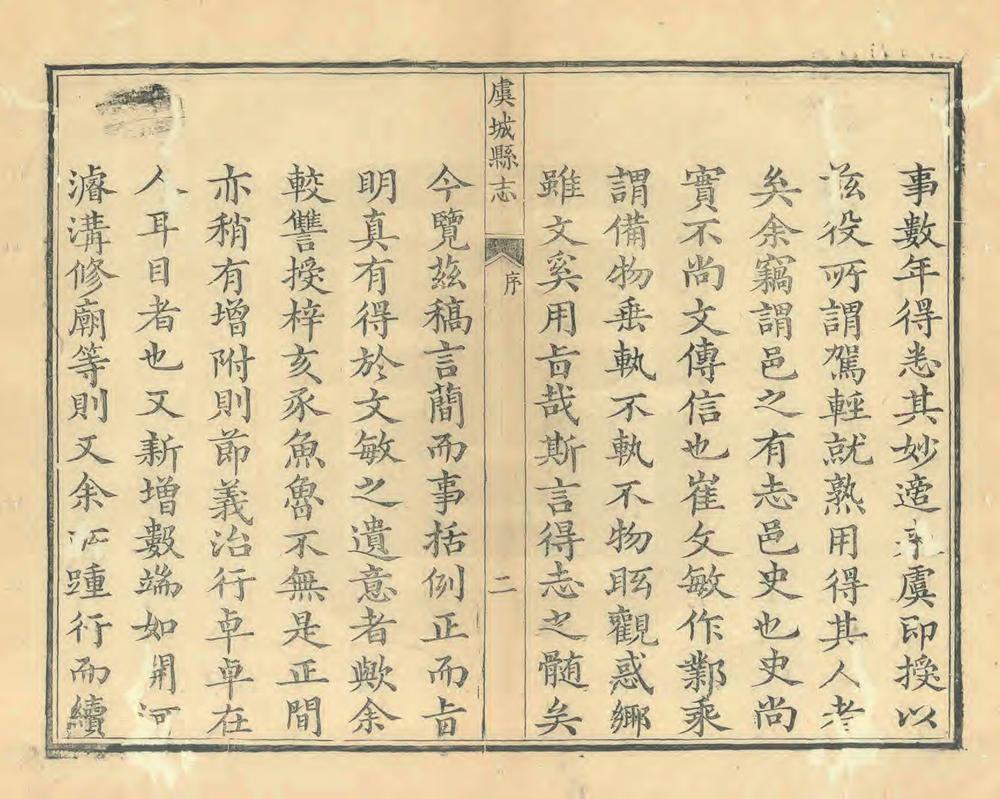 事數年得悉其妙適來虞印授以
茲役所謂駕輕就熟用得其人者
矣余竊謂邑之有志邑史也史尚
實不尚文傳信也崔文敏作鄴乘
謂備物垂執不執不物眩觀惑鄉
雖文奚用旨哉斯言得志之髓矣
虞城縣志
序
二
今覽茲稿言蕳而事括例正而旨
明真有得於文敏之遺意者歟余
較讐授梓亥豕魚魯不無是正間
亦稍有增附則節義治行卓卓在
人耳目者也又新增數端如開河
濬溝修廟等則又余所踵行而續